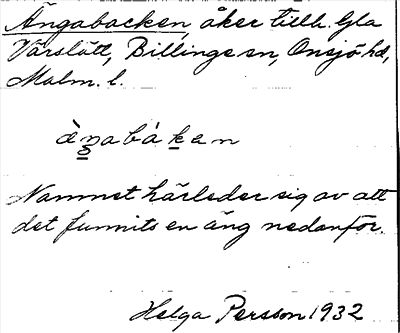 Ängabacken, åker tillh. Gla
Vårslätt, Billinge sn, Onsjö hd,
Malm. l.
àŋabákan
Namnet härleder sig av att
det funnits en äng nedanför.
Helga Persson 1932